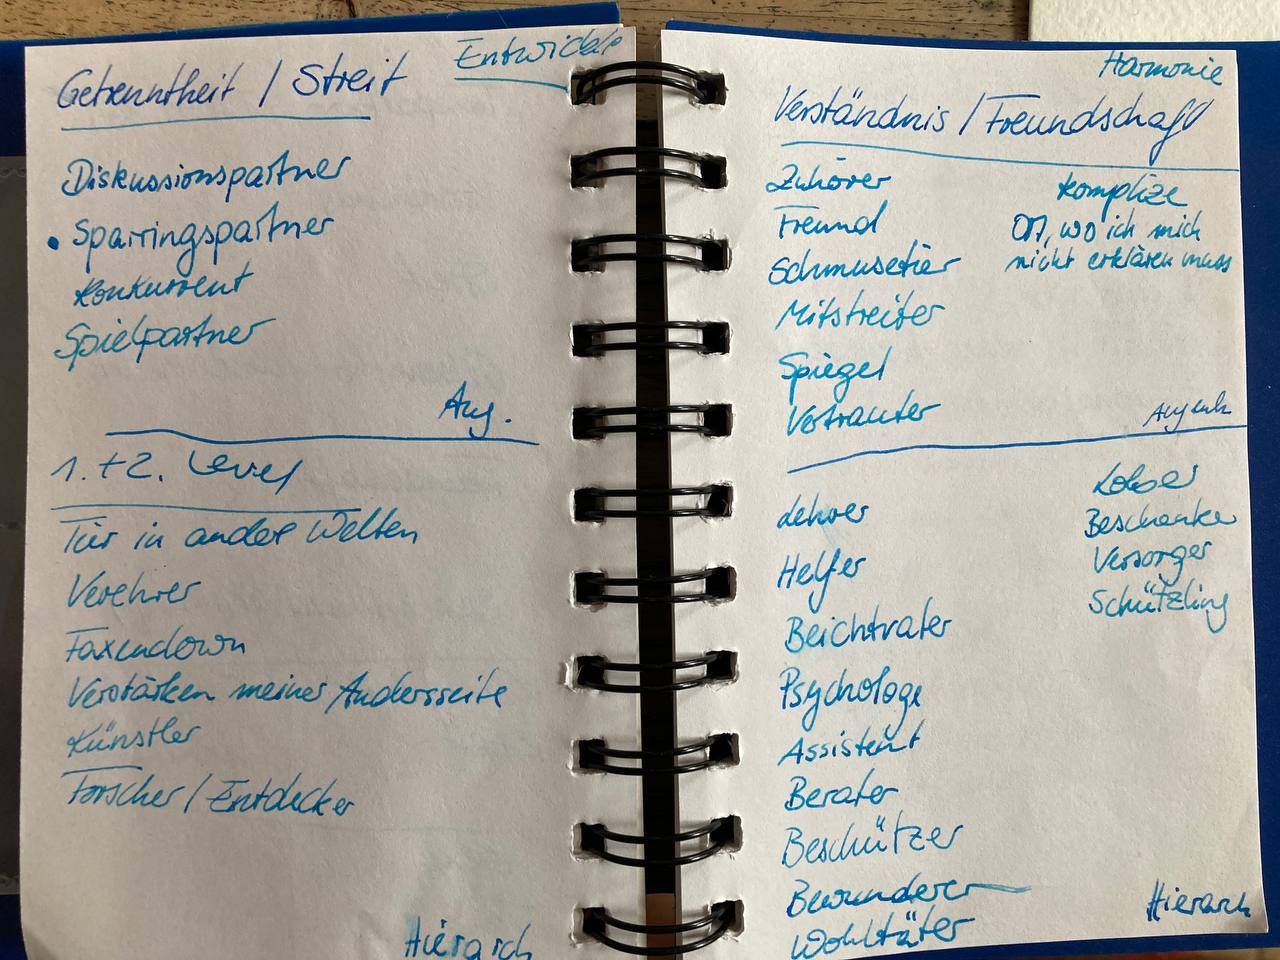 Getrenntheit / Streit
Entwickle
Diskussionspartner
• Sparringspartner
Konkurrent
Spielpartner
Aug.
1. + 2. Level
Tür in andere Welten
Verehrer
Faxenclown
Verstärken meiner Andersseite
Künstler
Forscher / Entdecker
Hierarch
Harmonie
Verständnis / Freundschaft
Zuhörer
Freund
Schmusetier
Mitstreiter
Spiegel
Vertrauter
Komplize
Ort, wo ich mich
nicht erklären muss
Augenh
Lehrer
Helfer
Beichtvater
Psychologe
Assistent
Berater
Beschützer
Bewunderer
Wohltäter
Lober
Beschenker
Versorger
Schützling
Hierarch